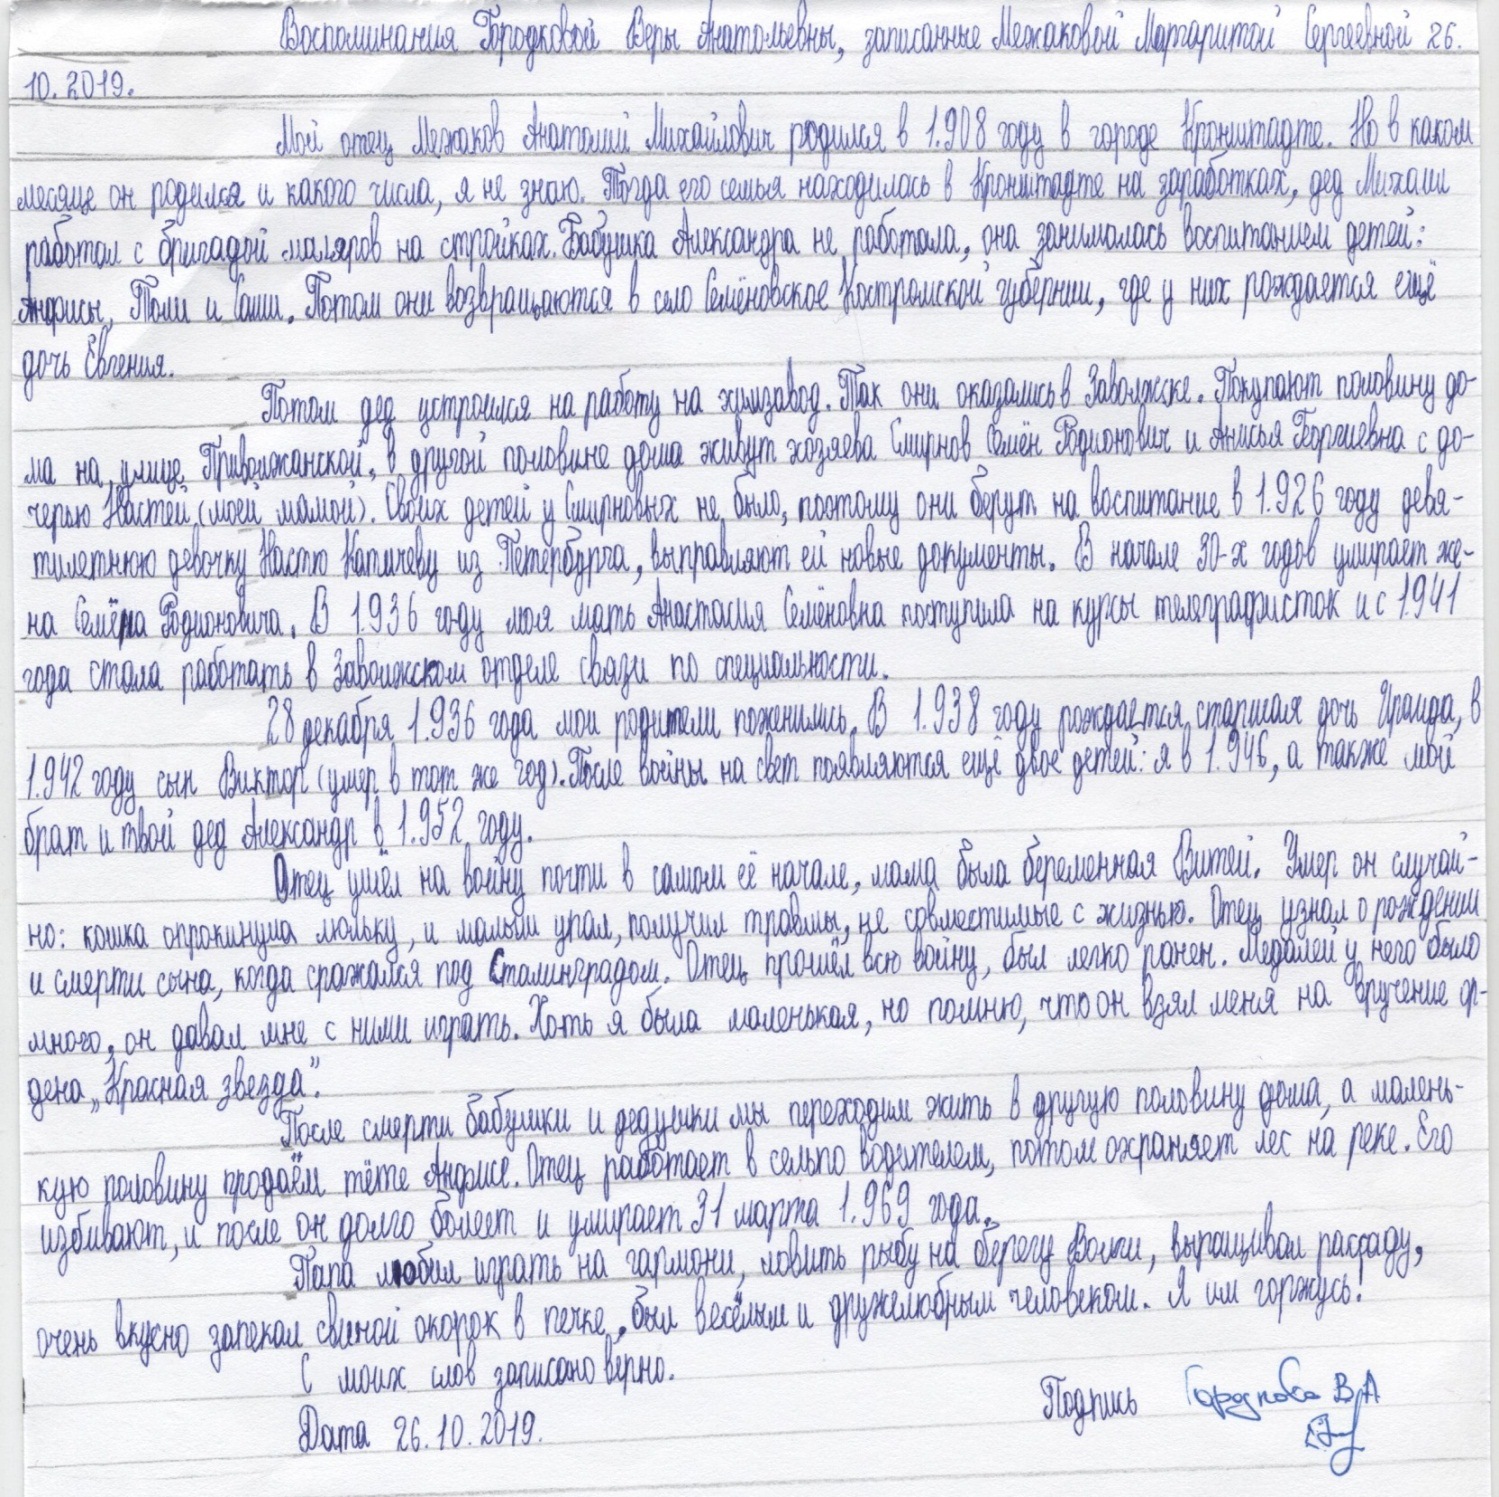 Воспоминания Городковой Веры Анатольевны, записанные Межаковой Маргаритой Сергеевной 26.
10.2019.
Мой отец Межаков Анатолий Михайлович родился в 1.908 году в городе Кронштадте. Но в каком
месяце он родился и какого числа, я не знаю. Тогда его семья находилась в Кронштадте на заработках, дед Михаил
работал с бригадой маляров на стройках. Бабушка Александра не работала, она занималась воспитанием детей:
Анфисы, Толи и Саши. Потом они возвращаются в село Семёновское Костромской губернии, где у них рождается ещё
дочь Евгения.
Потом дед устроился на работу на химзавод. Так они оказались в Заволжске. Покупают половину до-
ма на улице Приволжанской, в другой половине дома живут хозяева Смирнов Семён Родионович и Анисья Горгиевна с до-
черью Настей (моей мамой). Своих детей у Смирновых не было, поэтому они берут на воспитание в 1.926 году девя-
тилетнюю девочку Настю Качачеву из Петербурга, выправляют ей новые документы. В начале 30-х годов умирает же-
на Семёна Родионовича. В 1.936 году моя мать Анастасия Семёновна поступила на курсы телеграфисток и с 1.941
года стала работать в Заволжском отделе связи по специальности.
28 декабря 1.936 года мои родители поженились. В 1.938 году рождается старшая дочь Ираида, в
1.942 году сын Виктор (умер в тот же год). После войны на свет появляются ещё двое детей: я в 1.946, а также мой
брат и твой дед Александр в 1.952 году.
Отец ушёл на войну почти в самом её начале, мама была беременная Витей. Умер он случай-
но: кошка опрокинула люльку, и малыш упал, получил травмы, не совместимые с жизнью. Отец узнал о рождении
и смерти сына, когда сражался под Сталинградом. Отец прошёл всю войну, был легко ранен. Медалей у него было
много, он давал мне с ними играть. Хоть я была маленькая, но помню, что он взял меня на вручение ор-
дена „Красная звезда".
После смерти бабушки и дедушки мы переходим жить в другую половину дома, а малень-
кую половину продаём тёте Анфисе. Отец работает в сельпо водителем, потом охраняет лес на реке. Его
избивают, и после он долго болеет и умирает 31 марта 1.969 года.
Папа любил играть на гармони, ловить рыбу на берегу Волги, выращивал рассаду,
очень вкусно запекал свиной окорок в печке, был весёлым и дружелюбным человеком. Я им горжусь!
С моих слов записано верно.
Подпись Городкова В.А
Дата 26.10.2019.